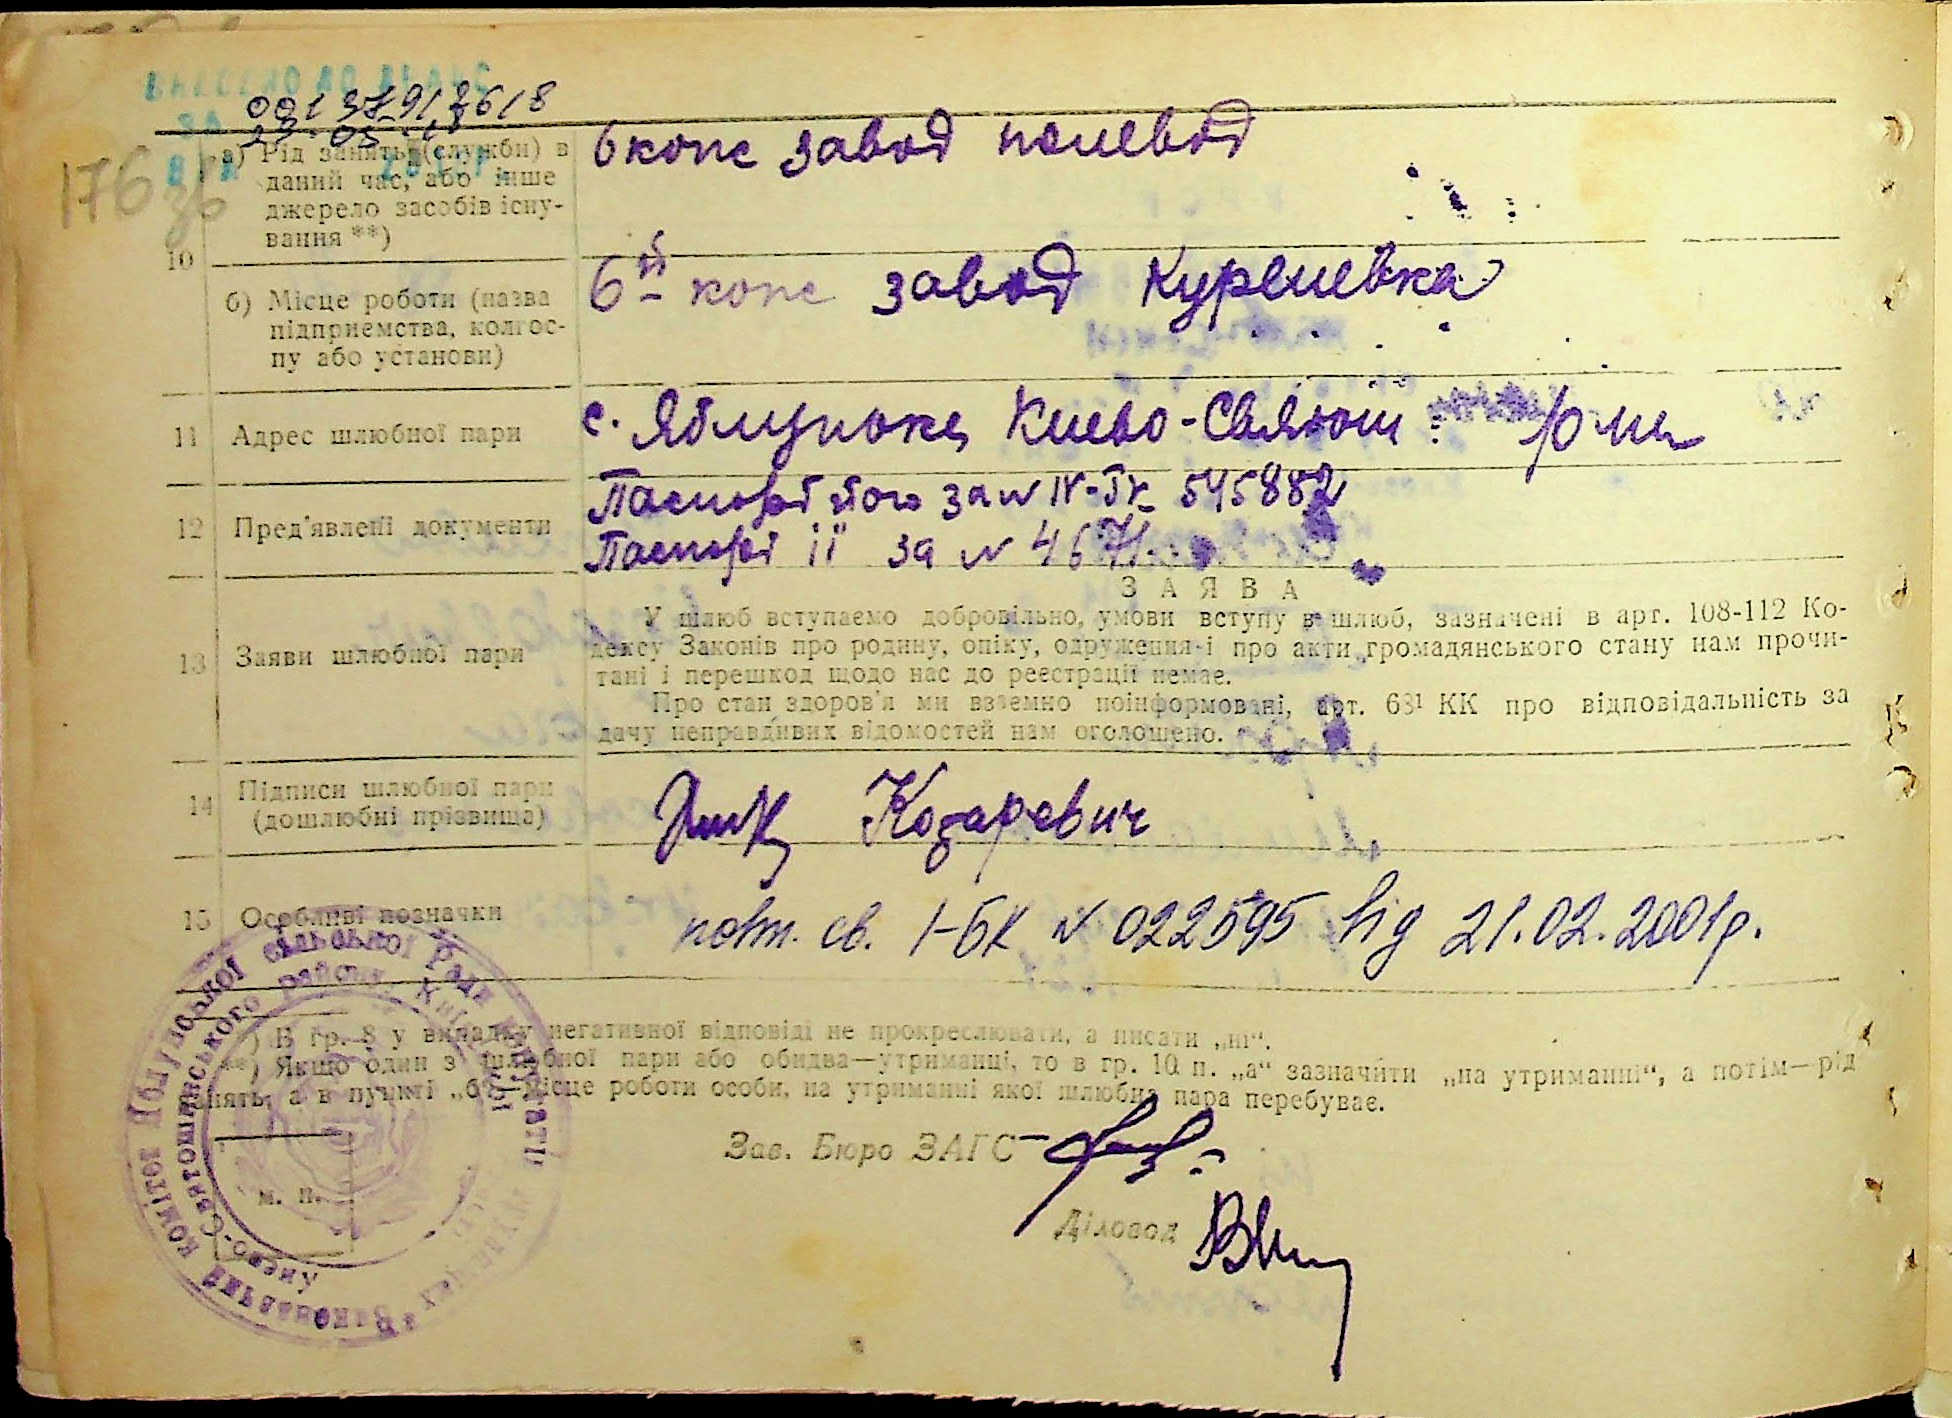 ВНЕСЕНО ДО ДРАЦС
00137912618
176 зв
10
а) Рід занять (служби) в
даний час, або інше
джерело засобів існу-
вання **)
6 конс завод
б) Місце роботи (назва
підприємства, колгос-
пу або установи)
6й конс завод Куреневка
11 Адрес шлюбної пари
с. Яблунька, Киево-Святош р-ну
12 Пред'явлені документи
Паспорт його за N IV-БК 545882
Паспорт її за N 4671
ЗАЯВА
13 Заяви шлюбної пари
У шлюб вступаємо добровільно, умови вступу в шлюб, зазначені в арт. 108-112 Ко-
дексу Законів про родину, опіку, одруження і про акти громадянського стану нам прочи-
тані і перешкод щодо нас до реєстрації немає.
Про стан здоров'я ми взаємно поінформовані, арт. 68¹ КК про відповідальність за
дачу неправдивих відомостей нам оголошено.
14 Підписи шлюбної пари
(дошлюбні прізвища)
Козаревич
15 Особливі позначки
повт. св. 1-БК N 022595 від 21.02.2001р.
*) В гр. 8 у випадку негативної відповіді не прокреслювати, а писати „ні“.
**) Якщо один з шлюбної пари або обидва—утриманці, то в гр. 10 п. „а“ зазначити „на утриманні“, а потім—рід
занять, а в пункті „б“ місце роботи особи, на утриманні якої шлюбна пара перебуває.
Зав. Бюро ЗАГС
Діловод
м. п.
Виконавчий комітет Яблунської сільської Ради депутатів
Києво-Святошинського району, Київської